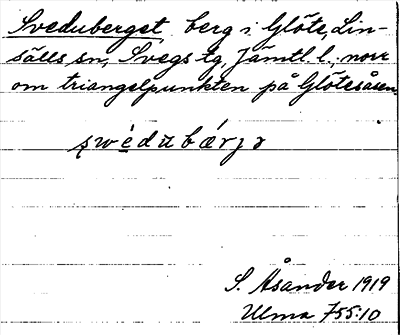 Sveduberget berg i Glöte, Lin-
sälls sn, Svegs tg, Jämtl. l., norr
om triangelpunkten på Glötesåsen.
S. Åsander 1919
Ulma 755:10